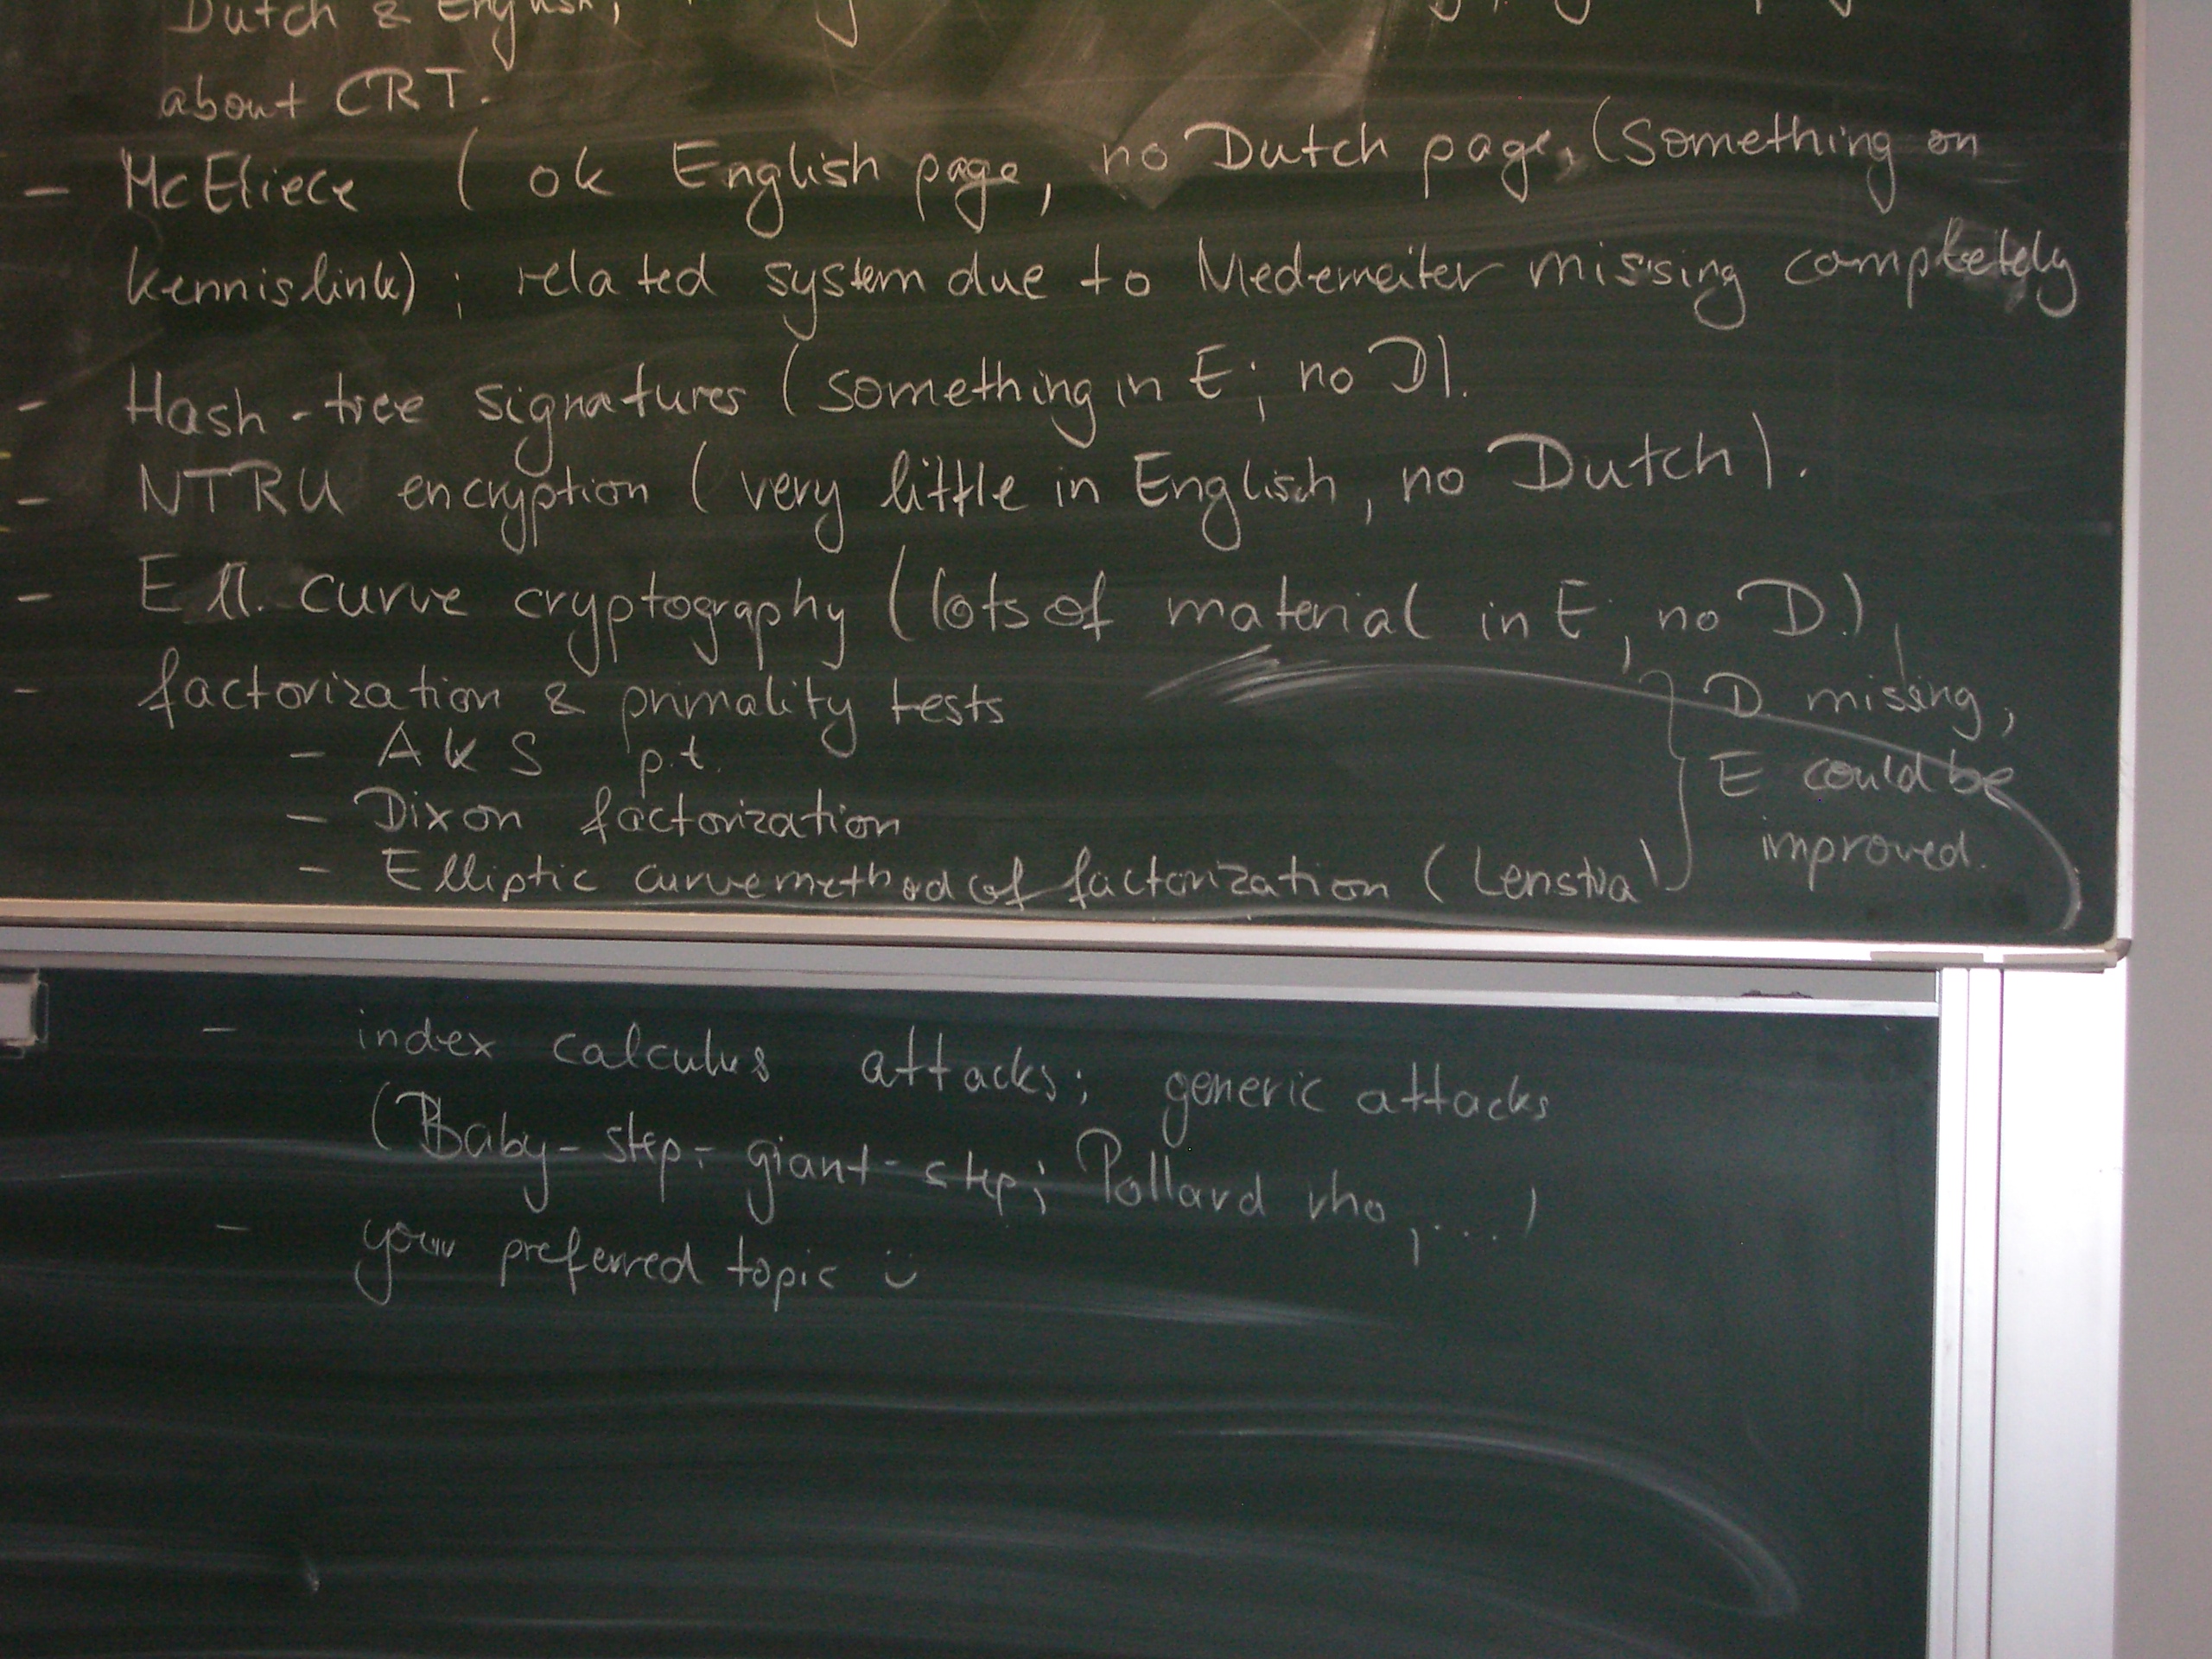 Dutch & English,
about CRT.
- McEliece ( ok English page, no Dutch page, (Something on
kennislink) ; related system due to Niederreiter missing completely
- Hash-tree signatures (something in E; no D).
- NTRU encryption ( very little in English, no Dutch).
- Ell. curve cryptography (lots of material in E, no D.)
- factorization & primality tests
- AKS p.t.
- Dixon factorization
- Elliptic curve method of factorization ( Lenstra)
D. missing,
E could be
improved.
- index calculus attacks; generic attacks
(Baby-step-giant-step; Pollard rho, ....)
- your preferred topic ü